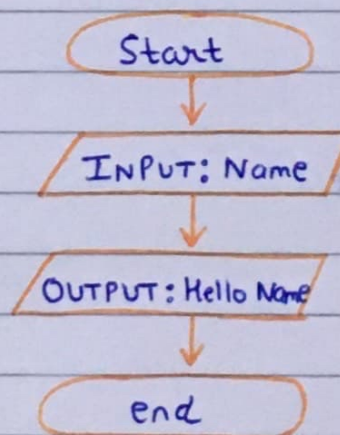 Start
INPUT: Name
OUTPUT: Hello Name
end